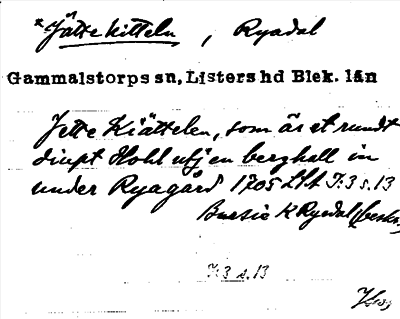 *Jättekitteln, Ryadal
Gammalstorps sn, Listers hd Blek. län
Jette Kiättelen, som är et rundt
diupt Hohl ufj en berghall in
under Ryagård 1705 LSA I:3 s.13
K Ryedal (beskr.)
I:3 s.13